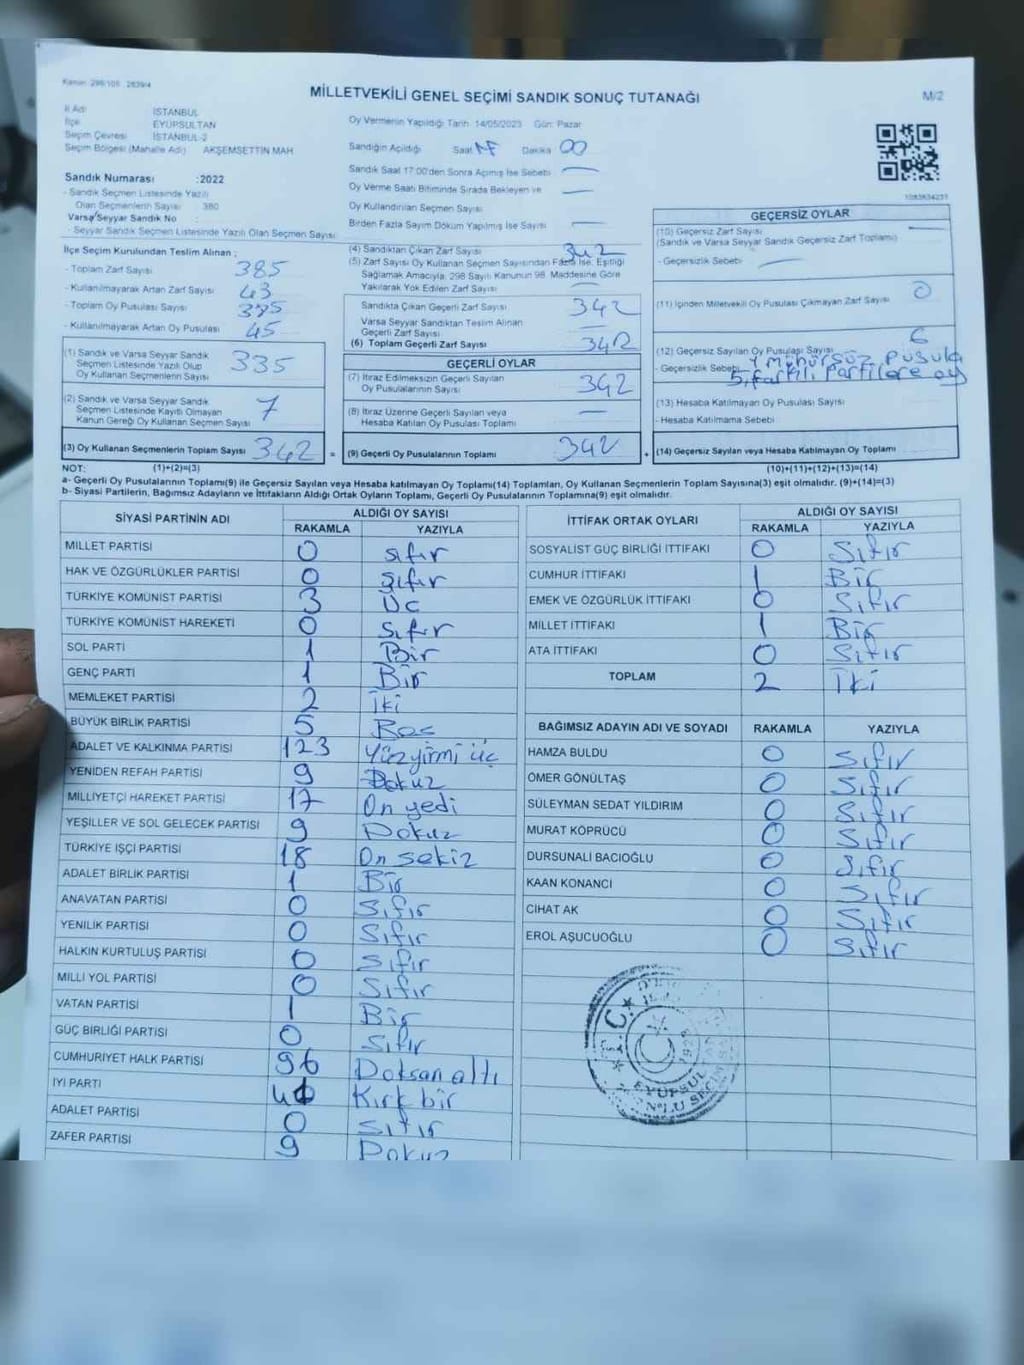 Kanun: 298/105 2839/4
MİLLETVEKİLİ GENEL SEÇİMİ SANDIK SONUÇ TUTANAĞI
M/2
İl Adı : İSTANBUL
İlçe : EYÜPSULTAN
Seçim Çevresi : İSTANBUL-2
Seçim Bölgesi (Mahalle Adı) : AKŞEMSETTİN MAH
Sandık Numarası : 2022
- Sandık Seçmen Listesinde Yazılı
Olan Seçmenlerin Sayısı : 380
Varsa Seyyar Sandık No :
- Seyyar Sandık Seçmen Listesinde Yazılı Olan Seçmen Sayısı
Oy Vermenin Yapıldığı Tarih: 14/05/2023 Gün: Pazar
Sandığın Açıldığı Saat 17 Dakika 00
Sandık Saat 17:00'den Sonra Açılmış İse Sebebi
Oy Verme Saati Bitiminde Sırada Bekleyen ve
Oy Kullandırılan Seçmen Sayısı
Birden Fazla Sayım Döküm Yapılmış İse Sayısı
İlçe Seçim Kurulundan Teslim Alınan ;
- Toplam Zarf Sayısı 385
- Kullanılmayarak Artan Zarf Sayısı 43
- Toplam Oy Pusulası Sayısı 385
- Kullanılmayarak Artan Oy Pusulası 45
(1) Sandık ve Varsa Seyyar Sandık
Seçmen Listesinde Yazılı Olup
Oy Kullanan Seçmenlerin Sayısı 335
(2) Sandık ve Varsa Seyyar Sandık
Seçmen Listesinde Kayıtlı Olmayan
Kanun Gereği Oy Kullanan Seçmen Sayısı 7
(3) Oy Kullanan Seçmenlerin Toplam Sayısı 342
(4) Sandıktan Çıkan Zarf Sayısı 342
(5) Zarf Sayısı Oy Kullanan Seçmen Sayısından Fazla İse, Eşitliği
Sağlamak Amacıyla, 298 Sayılı Kanunun 98. Maddesine Göre
Yakılarak Yok Edilen Zarf Sayısı
Sandıkta Çıkan Geçerli Zarf Sayısı 342
Varsa Seyyar Sandıktan Teslim Alınan
Geçerli Zarf Sayısı
(6) Toplam Geçerli Zarf Sayısı 342
GEÇERLİ OYLAR
(7) İtiraz Edilmeksizin Geçerli Sayılan
Oy Pusulalarının Sayısı 342
(8) İtiraz Üzerine Geçerli Sayılan veya
Hesaba Katılan Oy Pusulası Toplamı
= (9) Geçerli Oy Pusulalarının Toplamı 342
GEÇERSİZ OYLAR
(10) Geçersiz Zarf Sayısı
(Sandık ve Varsa Seyyar Sandık Geçersiz Zarf Toplamı)
- Geçersizlik Sebebi
(11) İçinden Milletvekili Oy Pusulası Çıkmayan Zarf Sayısı 0
(12) Geçersiz Sayılan Oy Pusulası Sayısı 6
- Geçersizlik Sebebi 1 Mühürsüz pusula
5, farklı partilere oy
(13) Hesaba Katılmayan Oy Pusulası Sayısı
- Hesaba Katılmama Sebebi
+ (14) Geçersiz Sayılan veya Hesaba Katılmayan Oy Toplamı
NOT: (1)+(2)=(3)
(10)+(11)+(12)+(13)=(14)
a- Geçerli Oy Pusulalarının Toplamı(9) ile Geçersiz Sayılan veya Hesaba katılmayan Oy Toplamı(14) Toplamları, Oy Kullanan Seçmenlerin Toplam Sayısına(3) eşit olmalıdır. (9)+(14)=(3)
b- Siyasi Partilerin, Bağımsız Adayların ve İttifakların Aldığı Ortak Oyların Toplamı, Geçerli Oy Pusulalarının Toplamına(9) eşit olmalıdır.
SİYASİ PARTİNİN ADI ALDIĞI OY SAYISI
RAKAMLA YAZIYLA
MİLLET PARTİSİ 0 sıfır
HAK VE ÖZGÜRLÜKLER PARTİSİ 0 sıfır
TÜRKİYE KOMÜNİST PARTİSİ 3 Üc
TÜRKİYE KOMÜNİST HAREKETİ 0 sıfır
SOL PARTİ 1 Bir
GENÇ PARTİ 1 Bir
MEMLEKET PARTİSİ 2 İki
BÜYÜK BİRLİK PARTİSİ 5 Beş
ADALET VE KALKINMA PARTİSİ 123 Yüzyirmi üç
YENİDEN REFAH PARTİSİ 9 Dokuz
MİLLİYETÇİ HAREKET PARTİSİ 17 On yedi
YEŞİLLER VE SOL GELECEK PARTİSİ 9 Dokuz
TÜRKİYE İŞÇİ PARTİSİ 18 On sekiz
ADALET BİRLİK PARTİSİ 1 Bir
ANAVATAN PARTİSİ 0 Sıfır
YENİLİK PARTİSİ 0 Sıfır
HALKIN KURTULUŞ PARTİSİ 0 Sıfır
MİLLİ YOL PARTİSİ 0 Sıfır
VATAN PARTİSİ 1 Bir
GÜÇ BİRLİĞİ PARTİSİ 0 Sıfır
CUMHURİYET HALK PARTİSİ 96 Doksan altı
İYİ PARTİ 41 Kırk bir
ADALET PARTİSİ 0 Sıfır
ZAFER PARTİSİ 9 Dokuz
İTTİFAK ORTAK OYLARI ALDIĞI OY SAYISI
RAKAMLA YAZIYLA
SOSYALİST GÜÇ BİRLİĞİ İTTİFAKI 0 Sıfır
CUMHUR İTTİFAKI 1 Bir
EMEK VE ÖZGÜRLÜK İTTİFAKI 0 Sıfır
MİLLET İTTİFAKI 1 Bir
ATA İTTİFAKI 0 Sıfır
TOPLAM 2 İki
BAĞIMSIZ ADAYIN ADI VE SOYADI RAKAMLA YAZIYLA
HAMZA BULDU 0 Sıfır
ÖMER GÖNÜLTAŞ 0 Sıfır
SÜLEYMAN SEDAT YILDIRIM 0 Sıfır
MURAT KÖPRÜCÜ 0 Sıfır
DURSUNALİ BACIOĞLU 0 Sıfır
KAAN KONANCI 0 Sıfır
CİHAT AK 0 Sıfır
EROL AŞUCUOĞLU 0 Sıfır
T.C.
EYÜPSULTAN